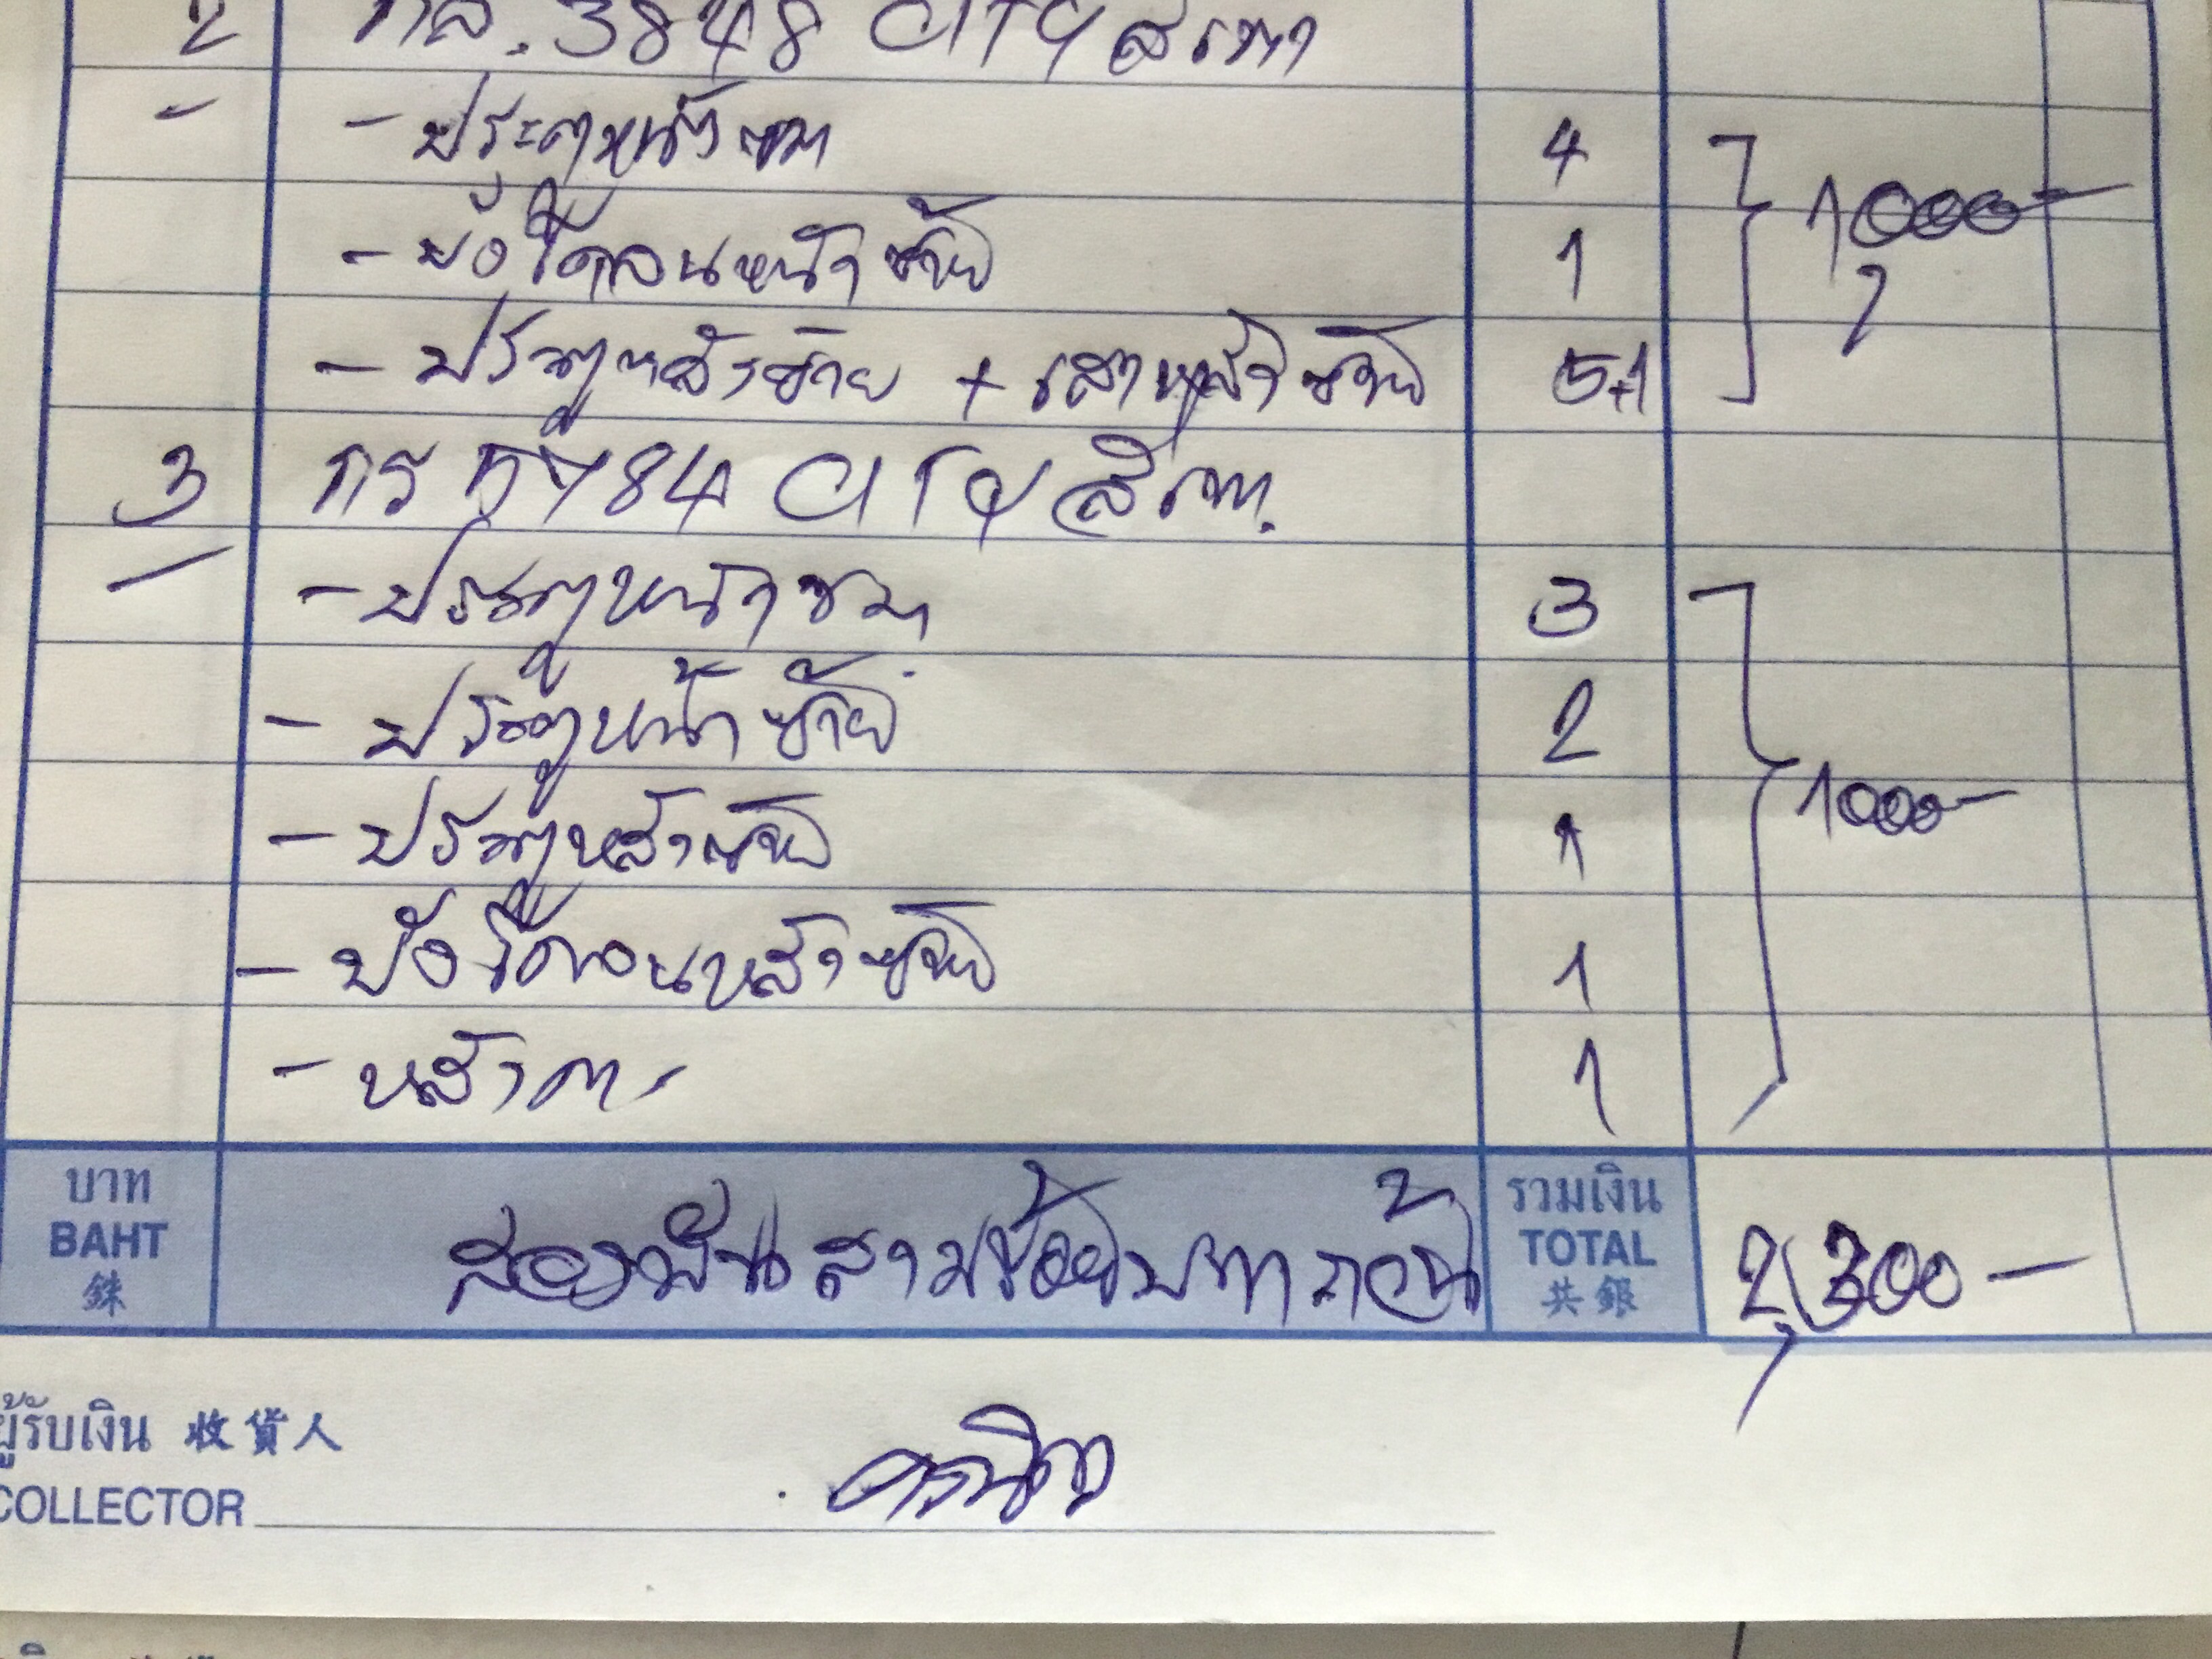 2 กล. 3848 CITY สีเทา
- ประตูหน้าขวา 4
- บังโคลนหน้าซ้าย 1 1000-
- ประตูหลังซ้าย + เสาหลังซ้าย 5+1
3 กร 5784 CITY สีเทา.
- ประตูหน้าขวา 3
- ประตูหน้าซ้าย 2
- ประตูหลังซ้าย 1 1000-
- บังโคลนหลังซ้าย 1
- หลังคา 1
บาท สองพันสามร้อยบาทถ้วน รวมเงิน 2,300-
BAHT TOTAL
銖 共銀
ผู้รับเงิน 收貨人
COLLECTOR